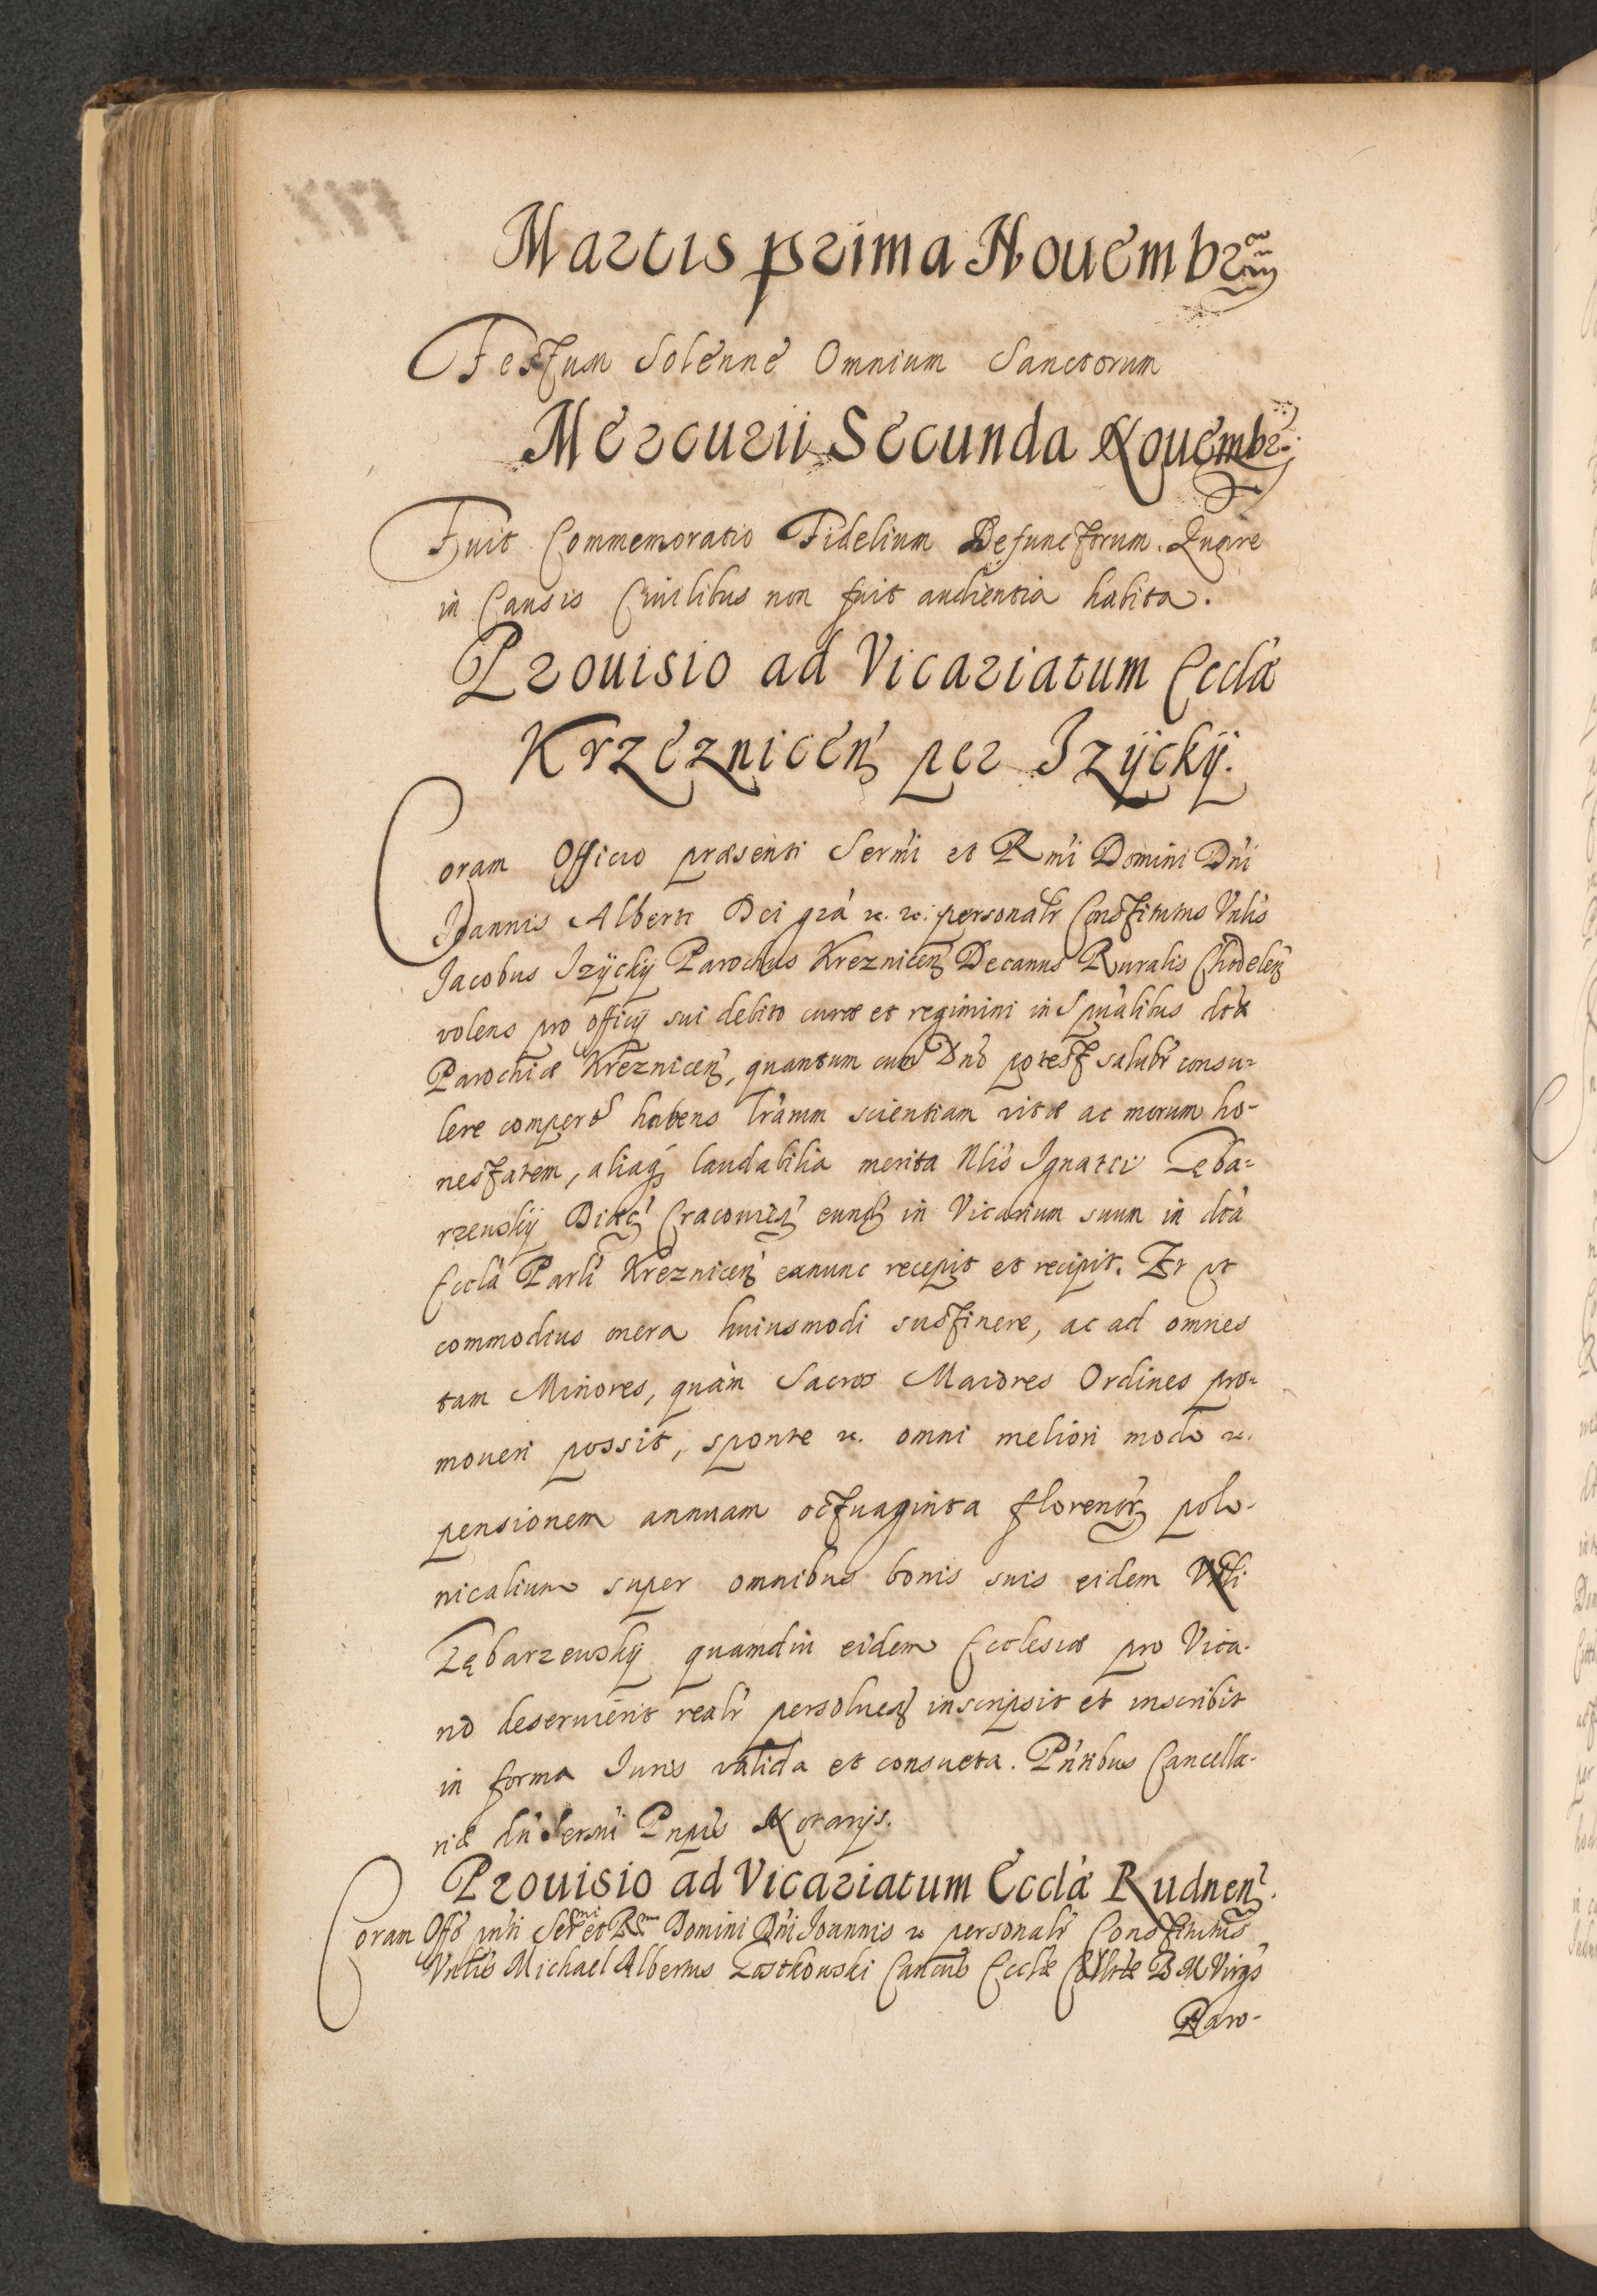 Martis prima Nouembr
Festum Solenne Omnium Sanctorum
Mercurii Secunda Nouembr:
Fuit Commemoratio Fidelium Defunctorum. Quare
in Causis Ciuilibus non fuit audientia habita.
Prouisio ad Vicariatum Eccłæ
Krzeznicen per Izÿckÿ.
Coram Officio præsenti Sermi et Rmi Domini Dni
Ioannis Alberti Dei gra etc. etc. personalr Constitutus Vnlis
Iacobus Izÿckÿ Parochus Kreznicen Decanus Ruralis Chodelen
volens pro officij sui debito curæ et regimini in Spualibus dtæ
Parochiæ Kreznicen, quantum cum Dno potest salubr consu-
lere compert habens lrarum scientiam vitæ ac morum ho-
nestatem, aliaq laudabilia merita Nlis Ignatii Zęba-
rzewskÿ Diæc Cracouien eund in Vicarium suum in dta
Eccla Parli Kreznicen exnunc recepit et recipit. Et ut
commodius onera huiusmodi sustinere, ac ad omnes
tam Minores, quàm Sacros Maiores Ordines pro-
moueri possit, sponte etc. omni meliori modo etc.
pensionem annuam octuaginta florenor polo-
nicalium super omnibus bonis suis eidem Nli
Zębarzewskÿ quamdiu eidem Ecclesiæ pro Vica-
rio deseruierit realr persoluen inscripsit et inscribit
in forma Iuris valida et consueta. Pntibus Cancella-
riæ dn Sermi Pnpis Notarijs.
Prouisio ad Vicariatum Ecclæ Rudnen.
Coram Offo pnti Sermi et Rmi Domini Dni Ioannis etc personalr Constitutus
Vnlis Michael Albertus Zostkowski Cancus Ecclæ Collatæ B M Virgis
Paro-